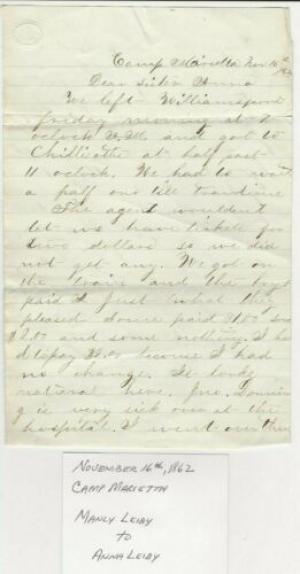 Camp Marietta Nov 16th
1862
Dear Sister Anna
We left Williamsport
friday morning at 2
oclock A.M. and got to
Chillicothe at half past
11 oclock. We had to wait
a half one till traintime
The agent wouldn't
let us have tickets for
two dollars so we did
not get any. We got on
the train and the boys
paid just what they
pleased some paid $1.00 some
$2.00 and some nothing. I ha
d to pay because I had
no change. It looks
national here. Jno.
g is very sick over at the
hospital. I went over there
November 16th, 1862
Camp Marietta
Manly Leiby
to
Anna Leiby